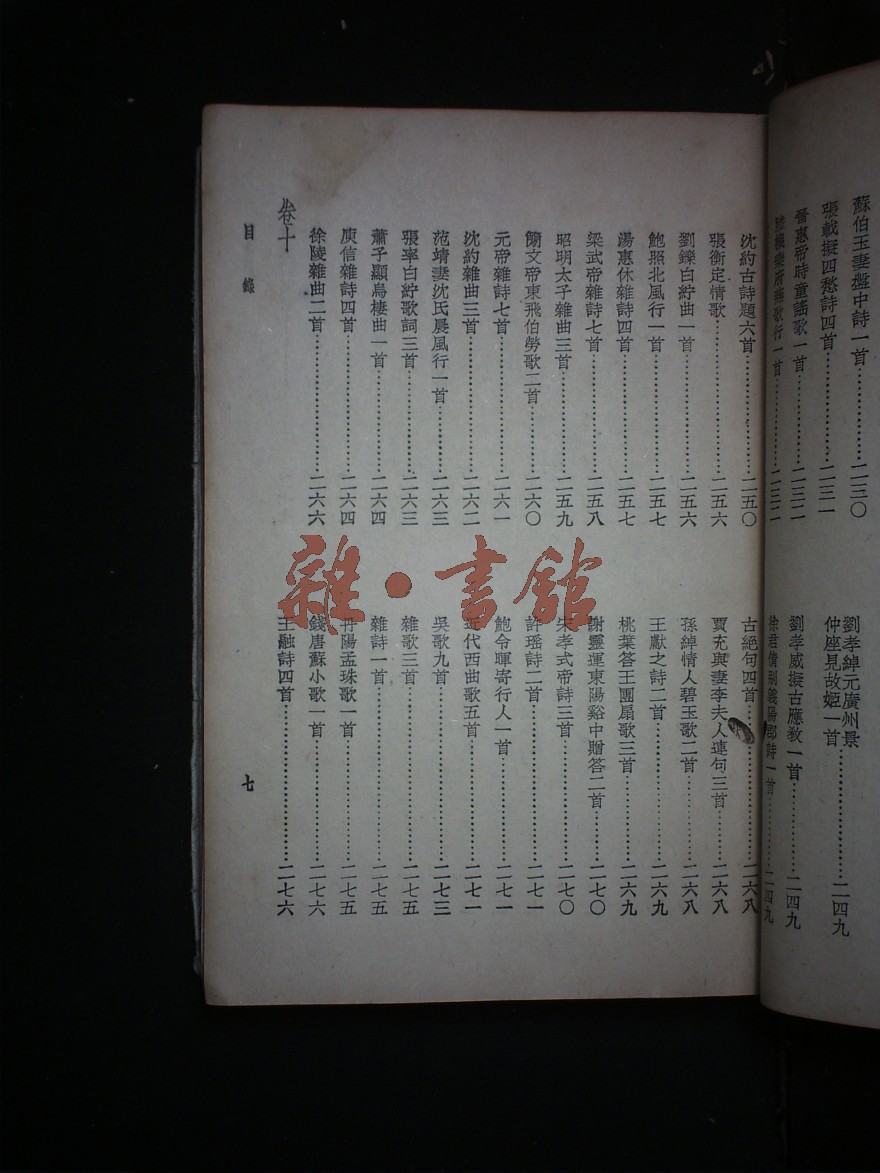 蘇伯玉妻盤中詩一首……二三〇
張載擬四愁詩四首……二三一
晉惠帝時童謠歌一首……二三二
樂府燕歌行一首……二三二
劉孝綽元廣州景
仲座見故姬一首……二四九
劉孝威擬古應教一首……二四九
徐君倩別義陽郡詩一首……二四九
沈約古詩題六首……二五〇
張衡定情歌……二五六
劉鑠白紵曲一首……二五六
鮑照北風行一首……二五七
湯惠休雜詩四首……二五七
梁武帝雜詩七首……二五八
昭明太子雜曲三首……二五九
簡文帝東飛伯勞歌二首……二六〇
元帝雜詩七首……二六一
沈約雜曲三首……二六二
范靖妻沈氏晨風行一首……二六三
張率白紵歌詞三首……二六三
蕭子顯烏棲曲一首……二六四
庾信雜詩四首……二六四
徐陵雜曲二首……二六六
卷十
古絕句四首……二六八
賈充與妻李夫人連句三首……二六八
孫綽情人碧玉歌二首……二六八
王獻之詩二首……二六九
桃葉答王團扇歌三首……二六九
謝靈運東陽谿中贈答二首……二七〇
宋孝武帝詩三首……二七〇
許瑤詩二首……二七一
鮑令暉寄行人一首……二七一
近代西曲歌五首……二七一
吳歌九首……二七三
雜歌三首……二七五
雜詩一首……二七五
丹陽孟珠歌一首……二七五
錢唐蘇小歌一首……二七六
王融詩四首……二七六
目錄
七
雜·書館